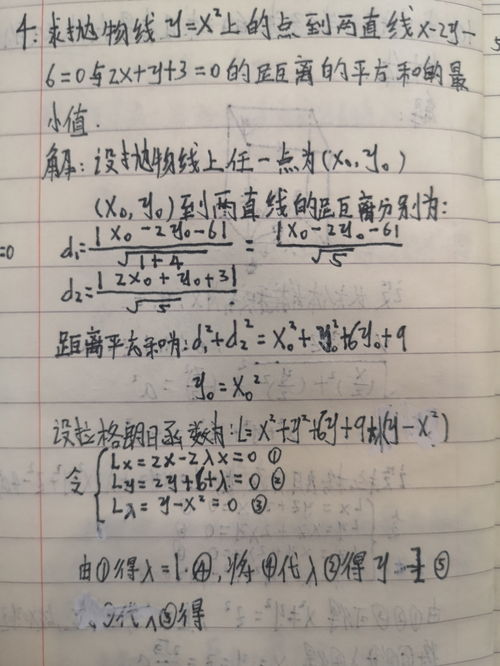 4. 求抛物线 y=x²上的点到两直线x-2y-
6=0与2x+y+3=0的距离的平方和的最
小值.
解: 设抛物线上任一点为(x₀,y₀)
(x₀,y₀)到两直线的距离分别为:
d₁=|x₀-2y₀-6|/√(1+4) = |x₀-2y₀-6|/√5
d₂=|2x₀+y₀+3|/√5
距离平方和为: d₁²+d₂²=x₀²+y₀²+6y₀+9
y₀=x₀²
设拉格朗日函数为: L=x²+y²+6y+9+λ(y-x²)
令 { Lx=2x-2λx=0 ①
Ly=2y+6+λ=0 ②
Lλ=y-x²=0 ③
由①得λ=1.④, 将④代入②得y ⑤
代入③得
=0
5